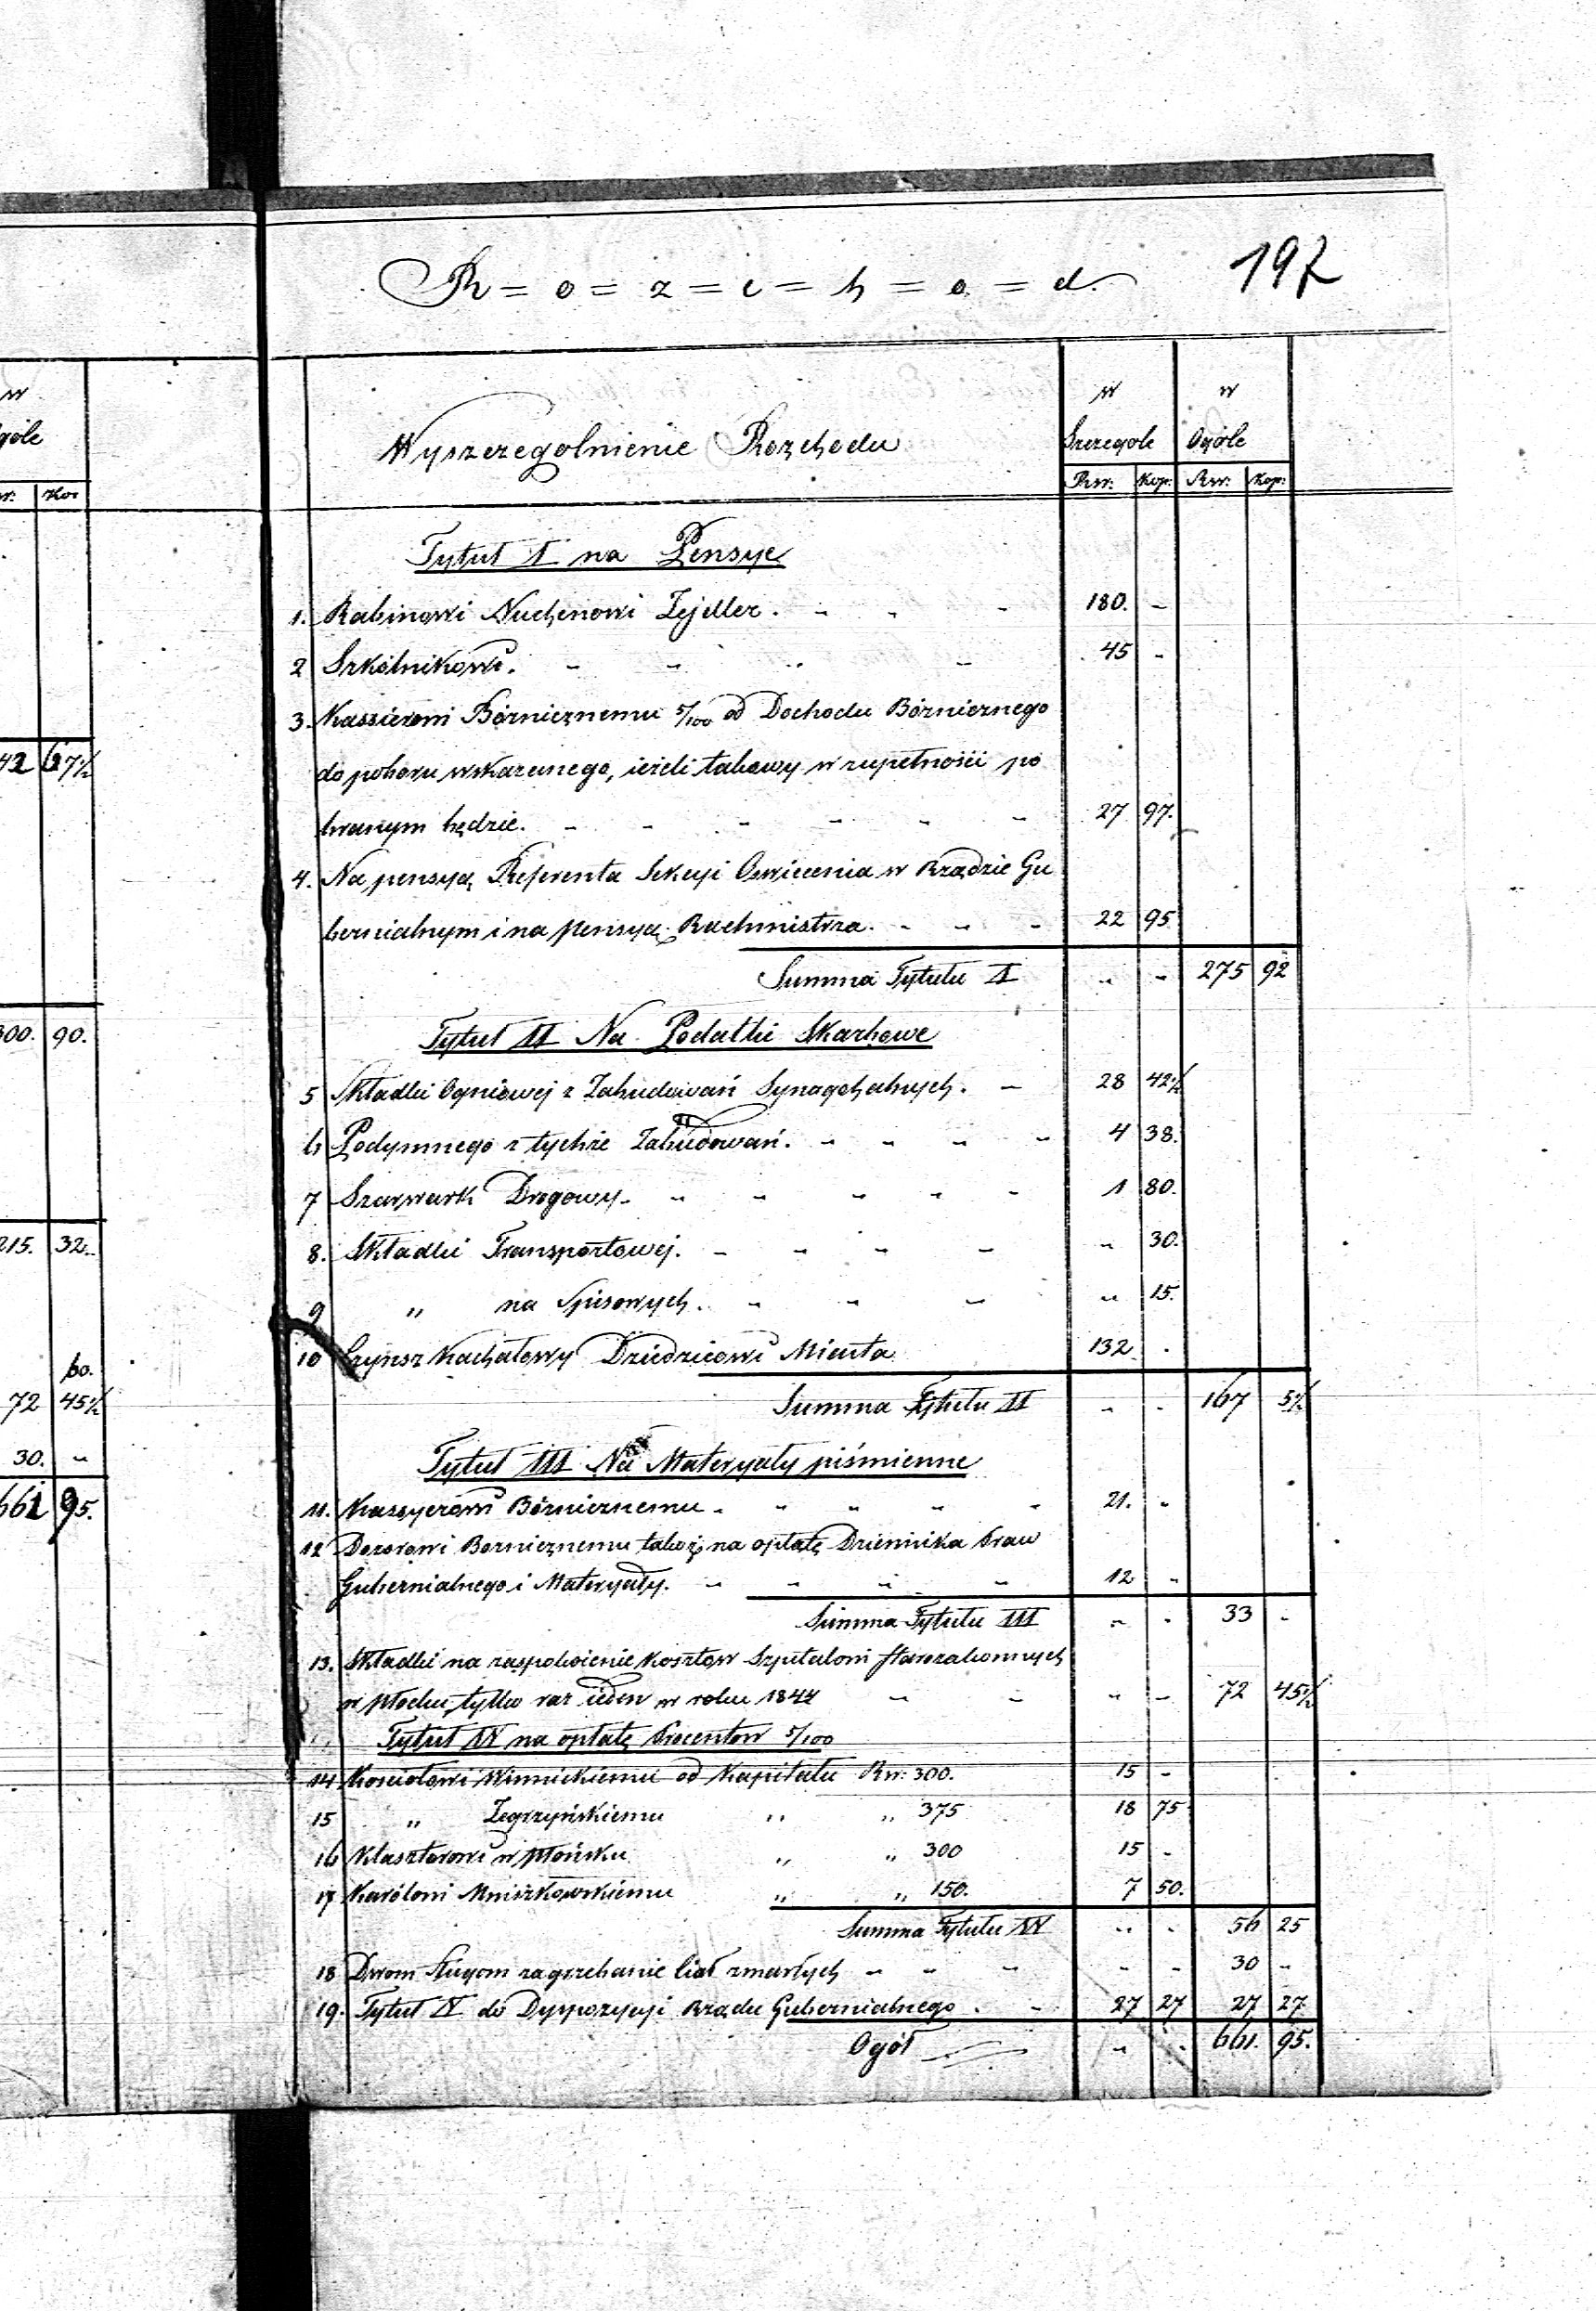 R = o = z = c = h = o = d.
197
w
góle
w: Kop
42 67½
300. 90.
215. 32.
60.
72 45½
30. "
661 95.
Wyszczegolnienie Rozchodu
w Szczegole
w Ogóle
Rsr: Kop: Rsr: Kop:
Tytuł I na Pensye
1. Rabinowi Nuchenowi Zejdler. - - - 180. -
2 Szkólnikowi. - - - - 45 -
3. Kassierowi Bóżnicznemu 5/100 od Dochodu Bóżnicznego
do poboru wskazanego, ieżeli takowy w zupełności po
branym będzie. - - - - - - 27 97.
4. Na pensyą Referenta Sekcyi Oswiecenia w Rządzie Gu
bernialnym i na pensyą Rachmistrza. - - - 22 95
Summa Tytułu I " - 275 92
Tytuł II Na Podatki Skarbowe
5 Składki Ogniowej z Zabudowań Synagohalnych. - 28 42½
6 Podymnego z tychże Zabudowań. - - - - 4 38.
7 Szarwark Drogowy - - - - - - 1 80.
8. Składki Transportowej. - - - - " 30.
9 " na Spisowych. - - - " 15.
10 Czynsz Kachałowy Dziedzicowi Miasta 132 .
Summa Tytułu II " - 167 5½
Tytuł III Na Materyały piśmienne
11. Kassyerowi Bóżnicznemu - - - - - 21. -
12 Dozorowi Bożnicznemu takoż na opłatę Dziennika Praw
Gubernialnego i Materyały. - - - - 12 -
Summa Tytułu III " - 33 -
13. Składki na zaspokoienie kosztow Szpitalowi Starozakonnych
w Płocku, tylko raz ieden w roku 1844 - - " - 72 45½
Tytuł IV na opłatę Procentow 5/100
14 Kosciołowi Winnickiemu od Kapitału Rsr: 300. 15 -
15 " Zegrzyńskiemu " " 375 18 75
16 Klasztorowi w Płońsku " " 300 15 -
17 Karólowi Mniszkowskiemu " " 150. 7 50.
Summa Tytułu IV " - 56 25
18 Dwom Sługom za grzebanie ciał zmarłych - - - - - 30 -
19. Tytuł V do Dyspozycyi Rządu Gubernialnego. - 27 27 27 27
Ogół " - 661. 95.